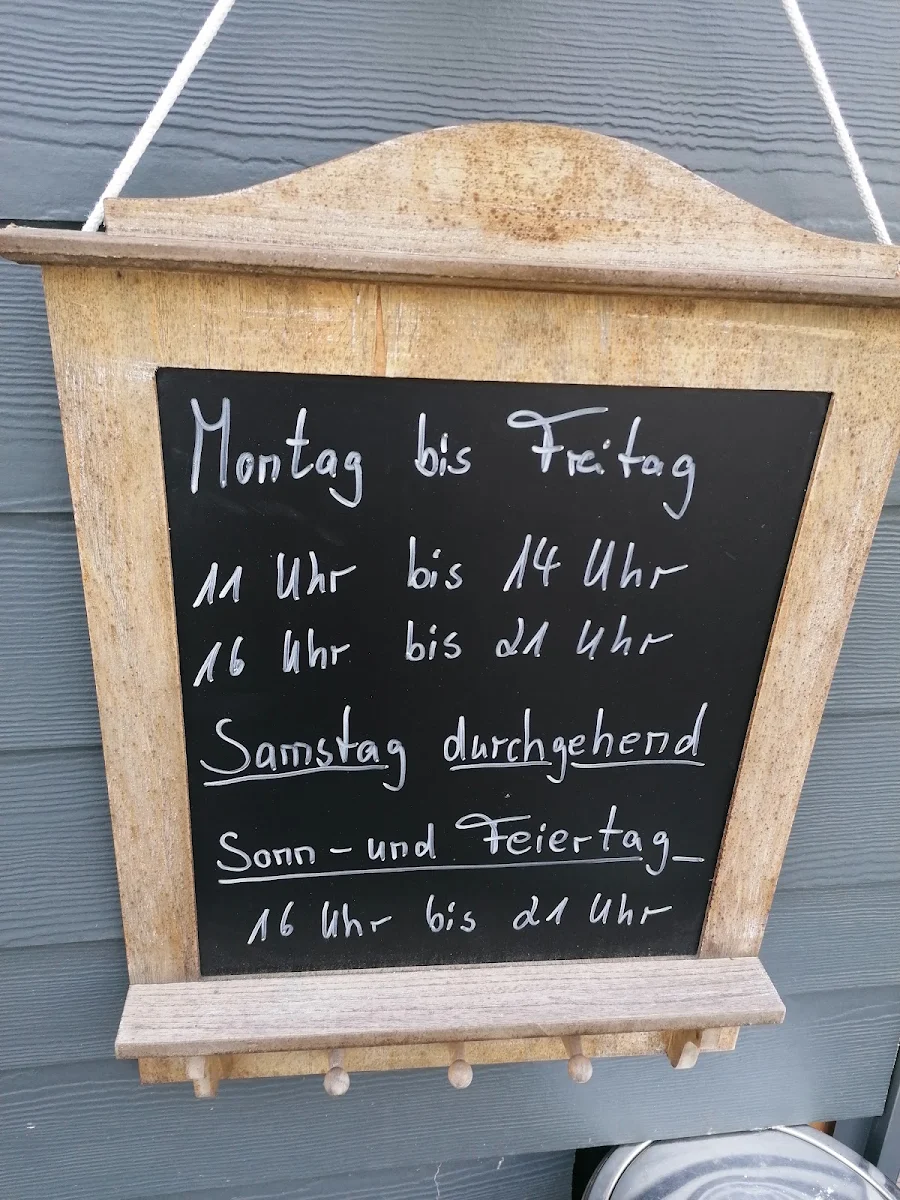 Montag bis Freitag
11 Uhr bis 14 Uhr
16 Uhr bis 21 Uhr
Samstag durchgehend
Sonn- und Feiertag
16 Uhr bis 21 Uhr